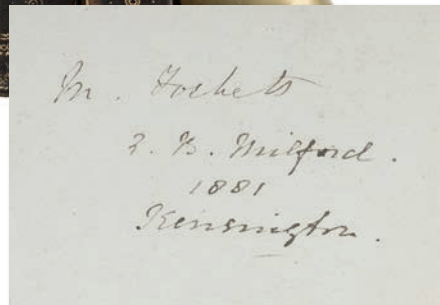 M. Fockett
2. B. Milford.
1881
Kensington.